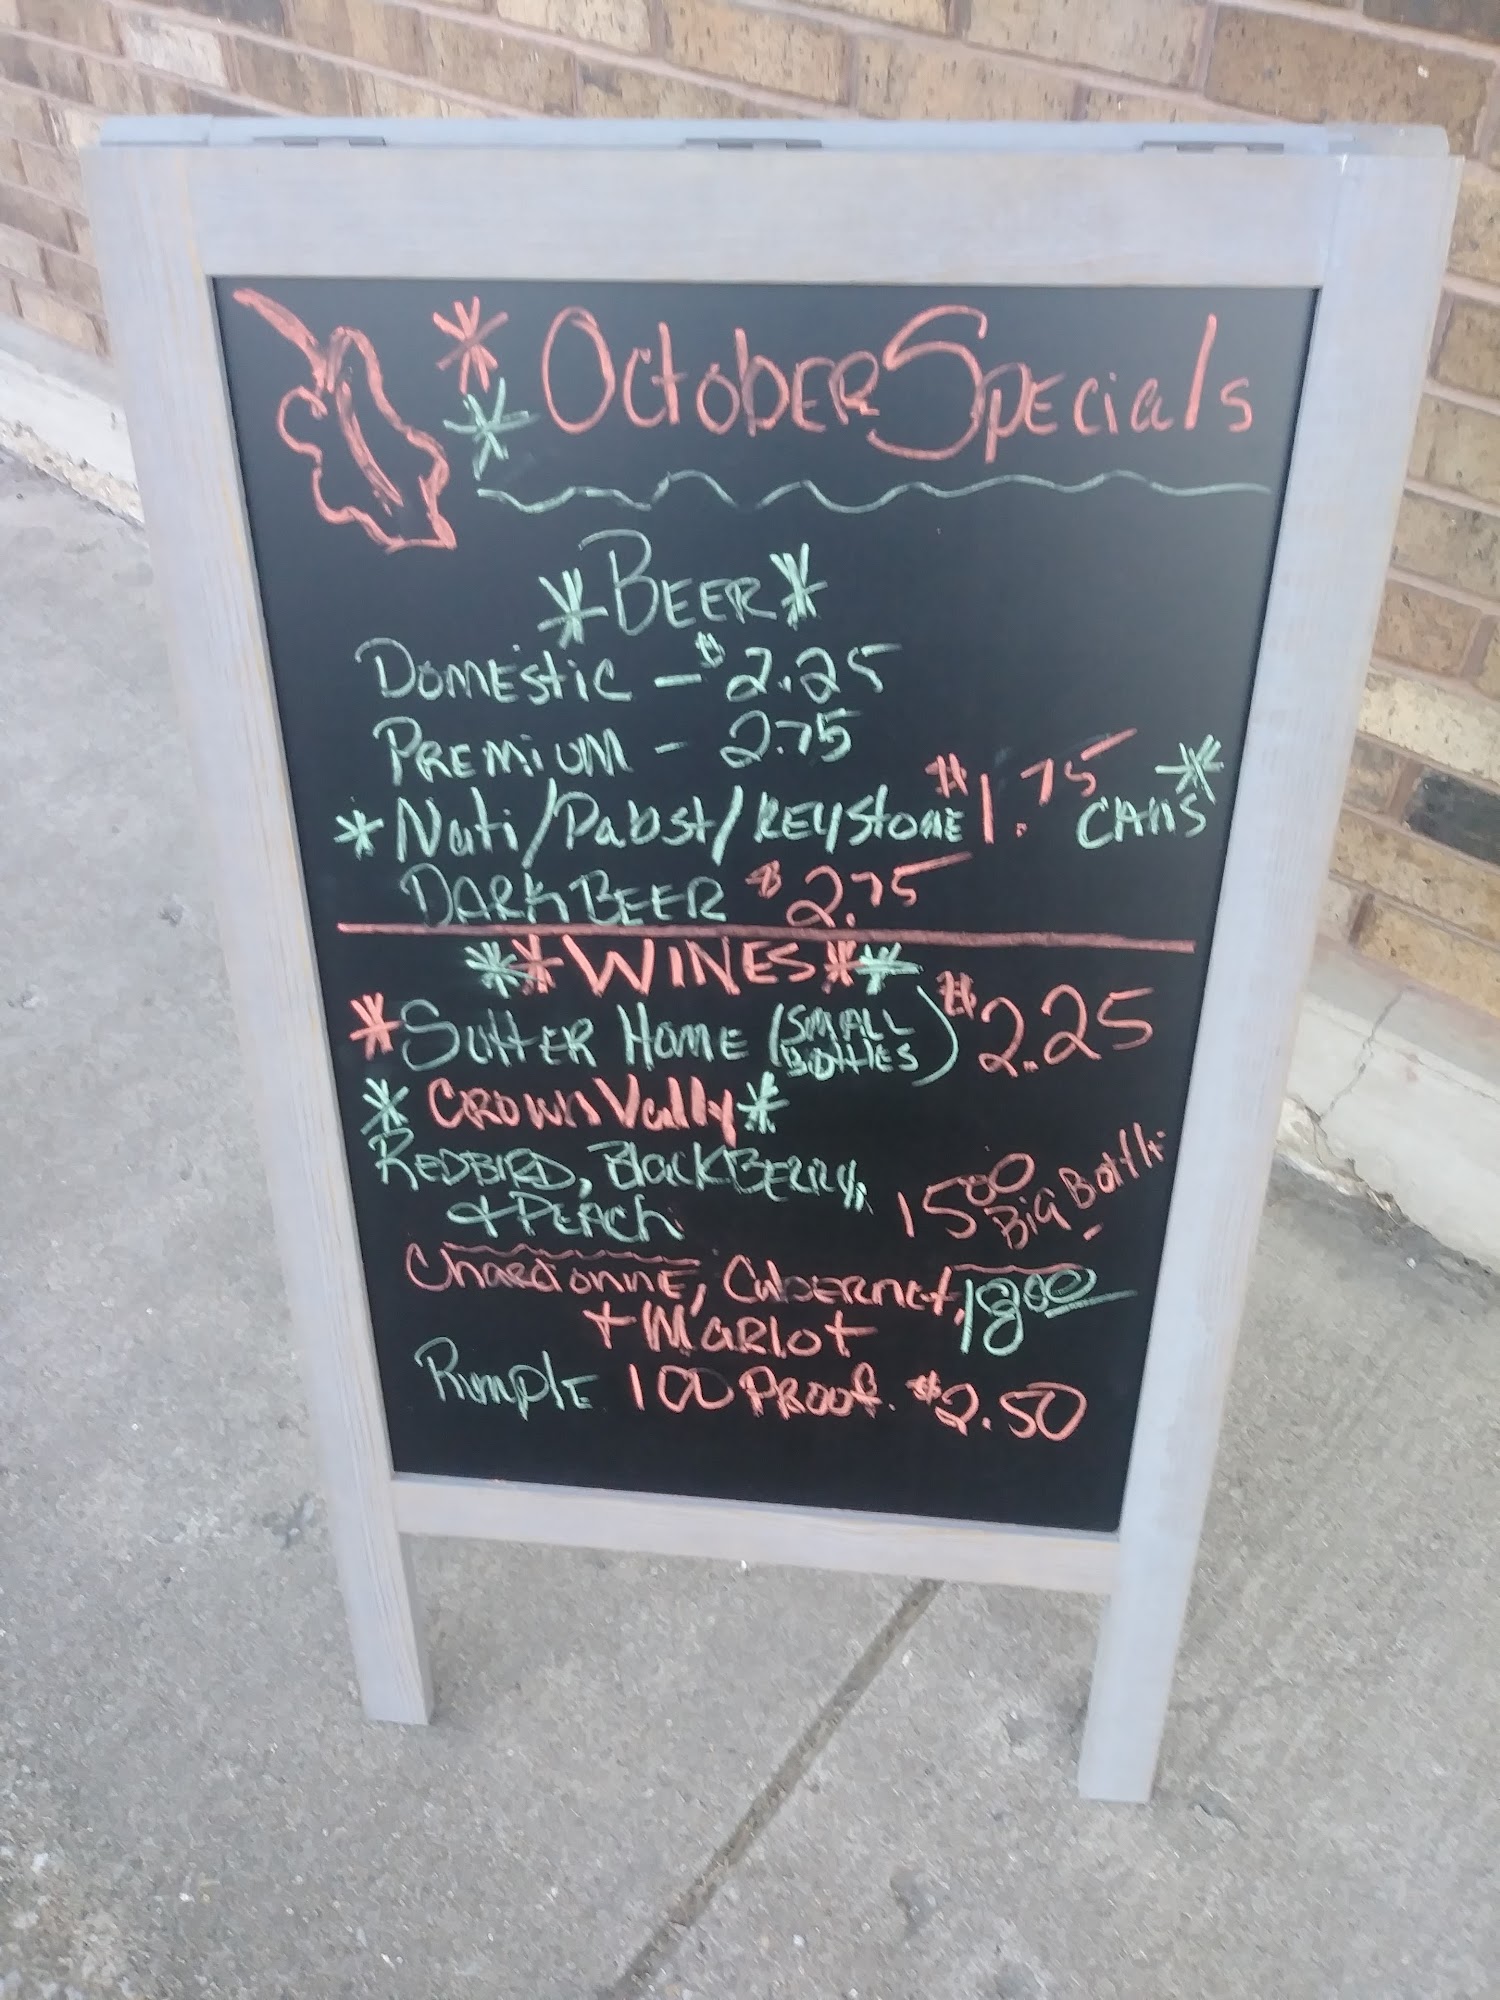 * October Specials
*
*Beer*
Domestic - $2.25
Premium - 2.75
*Nati/Pabst/Keystone $1.75 cans*
Dark Beer $2.75
**WINES**
*Sutter Home (Small Bottles) $2.25
*Crown Vally*
Redbird, Blackberry,
+ Peach 15.00 Big Bottle
Chardonne, Cabernet, 18.00
+ Marlot
Rumple 100 Proof. $2.50